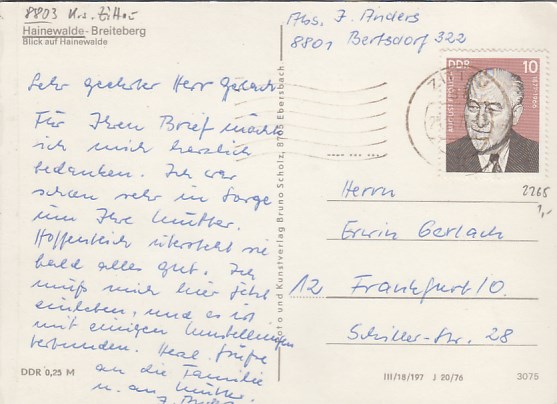 8803 Krs. Zittau
Hainewalde - Breiteberg
Blick auf Hainewalde
Abs. J. Anders
8801 Bertsdorf 322
DDR 10
Sehr geehrter Herr Gerlach
Für Ihren Brief möchte
ich mich herzlich
bedanken. Ich war
schon sehr in Sorge
um Ihre Mutter.
Hoffentlich übersteht sie
bald alles gut. Ich
muß mich hier jetzt
einleben, und es ist
mit einigen Umstellungen
verbunden. Herzl. Grüße
an die Familie
u. an Mutter.
Foto und Kunstverlag Bruno Scholz, 8705 Ebersbach
2265
1,-
Herrn
Erwin Gerlach
12 Frankfurt/O
Schiller-Str. 28
DDR 0,25 M
III/18/197 J 20/76
3075